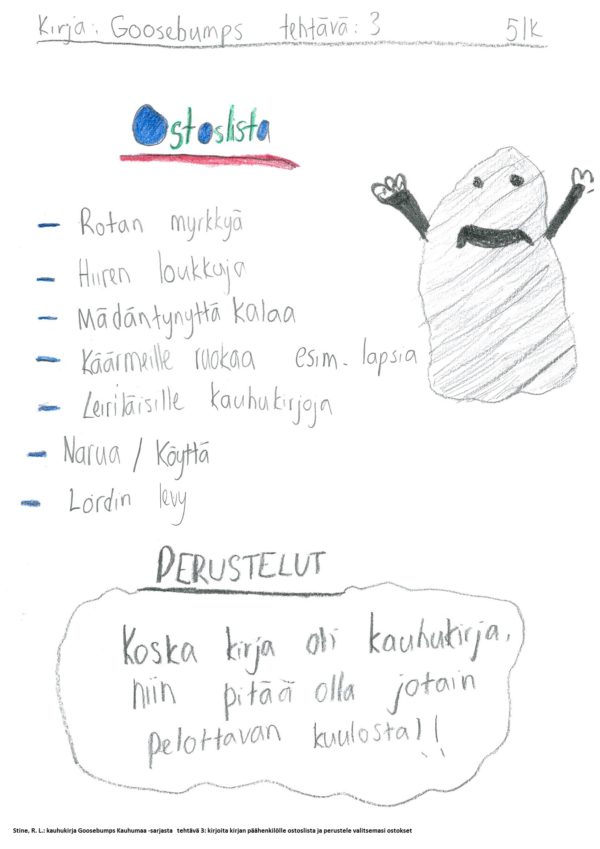 Kirja: Goosebumps tehtävä: 3 5/K
Ostoslista
- Rotan myrkkyä
- Hiiren loukkuja
- Mädäntynyttä kalaa
- Käärmeille ruokaa esim. lapsia
- Leiriläisille kauhukirjoja
- Narua / Köyttä
- Lordin levy
PERUSTELUT
Koska kirja oli kauhukirja,
niin pitää olla jotain
pelottavan kuulosta!!
Stine, R. L.: kauhukirja Goosebumps Kauhumaa -sarjasta tehtävä 3: kirjoita kirjan päähenkilölle ostoslista ja perustele valitsemasi ostokset